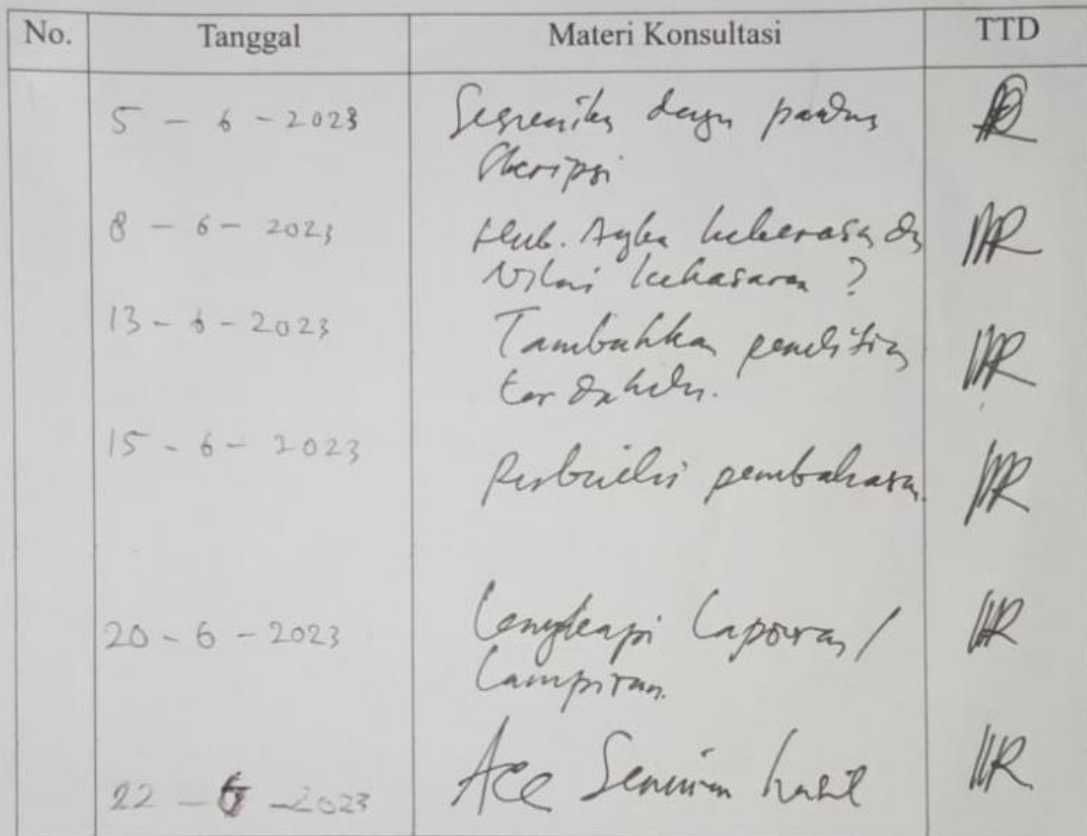 No. Tanggal Materi Konsultasi TTD
5 - 6 - 2023 Sesuaikan dengan panduan
Skripsi
8 - 6 - 2023 Hub. Angka kekerasan dg
Nilai kekasaran ?
13 - 6 - 2023 Tambahkan penelitian
terdahulu.
15 - 6 - 2023 Perbaiki pembahasan.
20 - 6 - 2023 Lengkapi Laporan /
Lampiran.
22 - 6 - 2023 Acc Seminar hasil